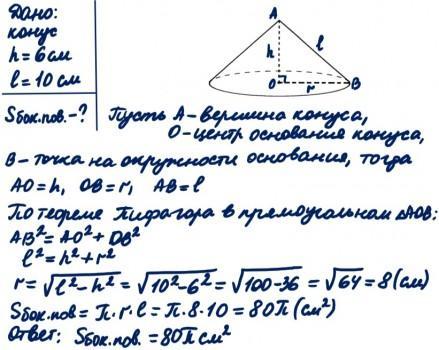 Дано:
конус
h = 6 см
l = 10 см
Sбок.пов. - ?
A
h
l
O
r
B
Пусть А - вершина конуса,
О - центр основания конуса,
В - точка на окружности основания, тогда
AO = h, OB = r, AB = l
По теореме Пифагора в прямоугольном △AOB:
AB² = AO² + OB²
l² = h² + r²
r = √(l² - h²) = √(10² - 6²) = √(100 - 36) = √64 = 8 (см)
Sбок.пов = π · r · l = π · 8 · 10 = 80π (см²)
Ответ: Sбок.пов. = 80π см²